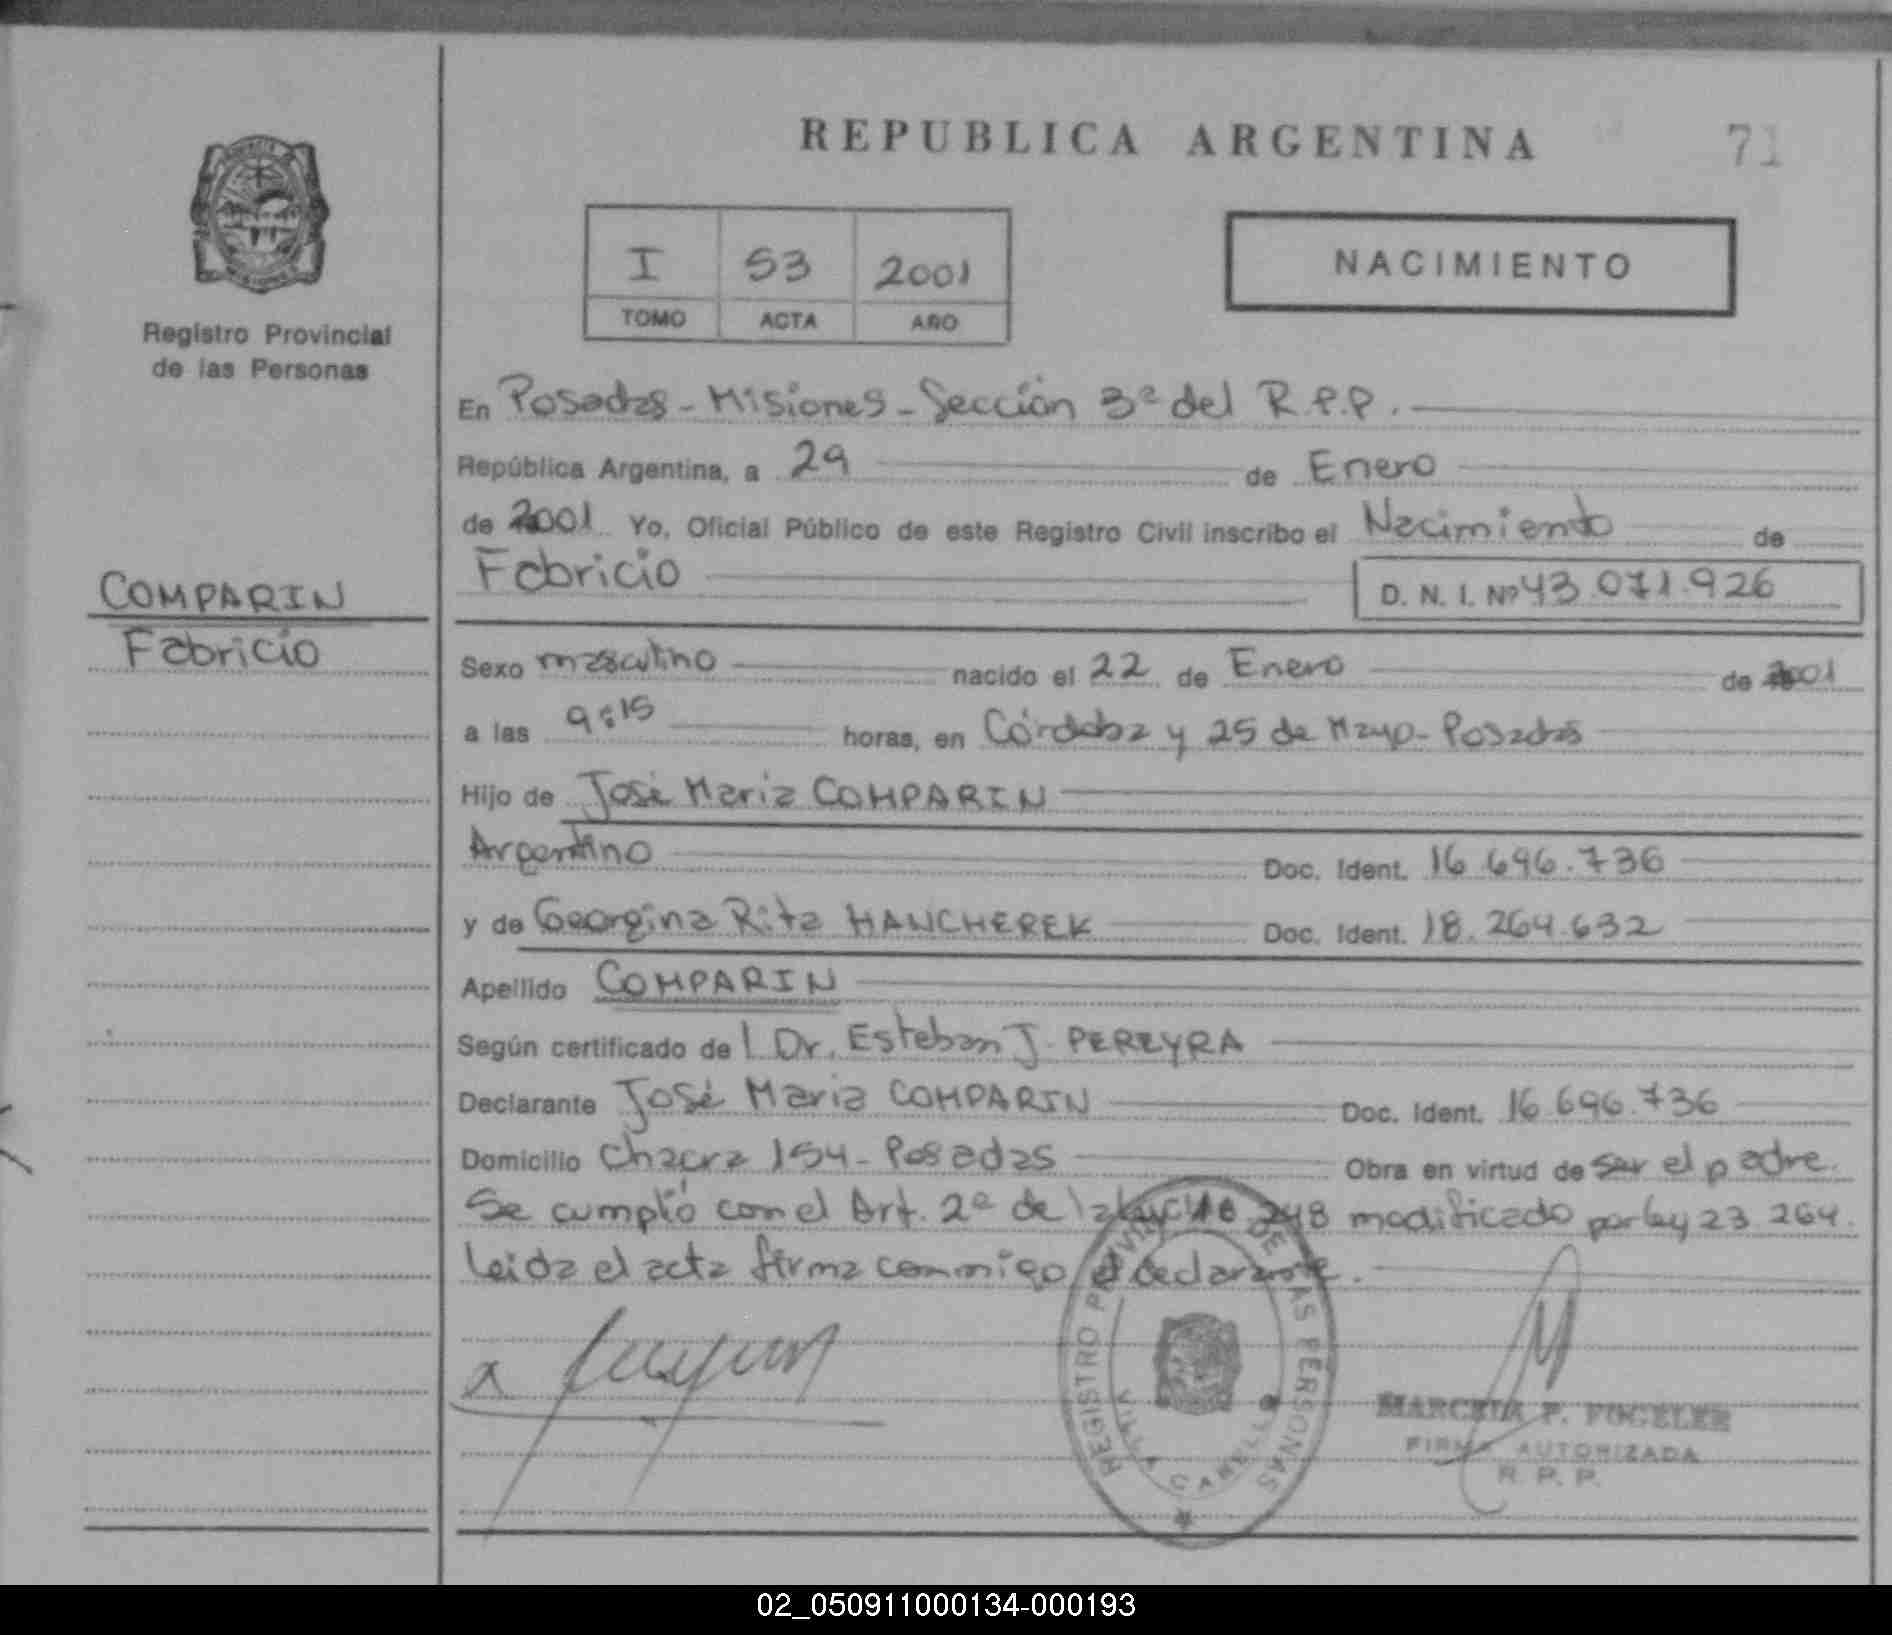 REPUBLICA ARGENTINA
71
I 53 2001
TOMO ACTA AÑO
NACIMIENTO
Registro Provincial
de las Personas
En Posadas - Misiones - Sección 3ª del R.P.P.
República Argentina, a 29 de Enero
de 2001 Yo, Oficial Público de este Registro Civil inscribo el Nacimiento de
Fabricio D. N. I. Nº 43.071.926
COMPARIN
Fabricio
Sexo masculino nacido el 22 de Enero de 2001
a las 9:15 horas, en Córdoba y 25 de Mayo - Posadas
Hijo de José Maria COMPARIN
Argentino Doc. Ident. 16.696.736
y de Georgina Rita HANCHEREK Doc. Ident. 18.264.632
Apellido COMPARIN
Según certificado del Dr. Esteban J. PEREYRA
Declarante José Maria COMPARIN Doc. Ident. 16.696.736
Domicilio Chacra 154 - Posadas Obra en virtud de ser el padre.
Se cumplió con el Art. 2º de la ley 18.248 modificado por ley 23.264.
Leida el acta firma conmigo el declarante.
REGISTRO PROVINCIAL DE LAS PERSONAS
VILLA CABELLO
MARCELA P. FOGELER
FIRMA AUTORIZADA
R. P. P.
02_050911000134-000193